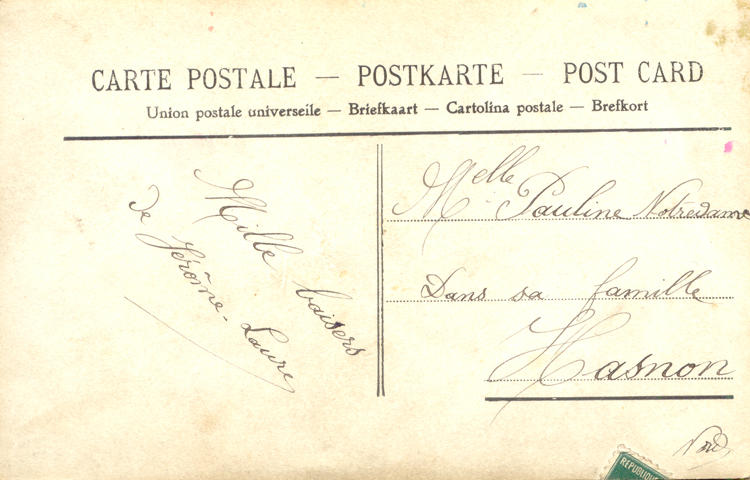 CARTE POSTALE — POSTKARTE — POST CARD
Union postale universelle — Briefkaart — Cartolina postale — Brefkort
Mille baisers
de Jérôme - Laure
Melle Pauline Notredame
Dans sa famille
Hasnon
Nord
REPUBLIQUE